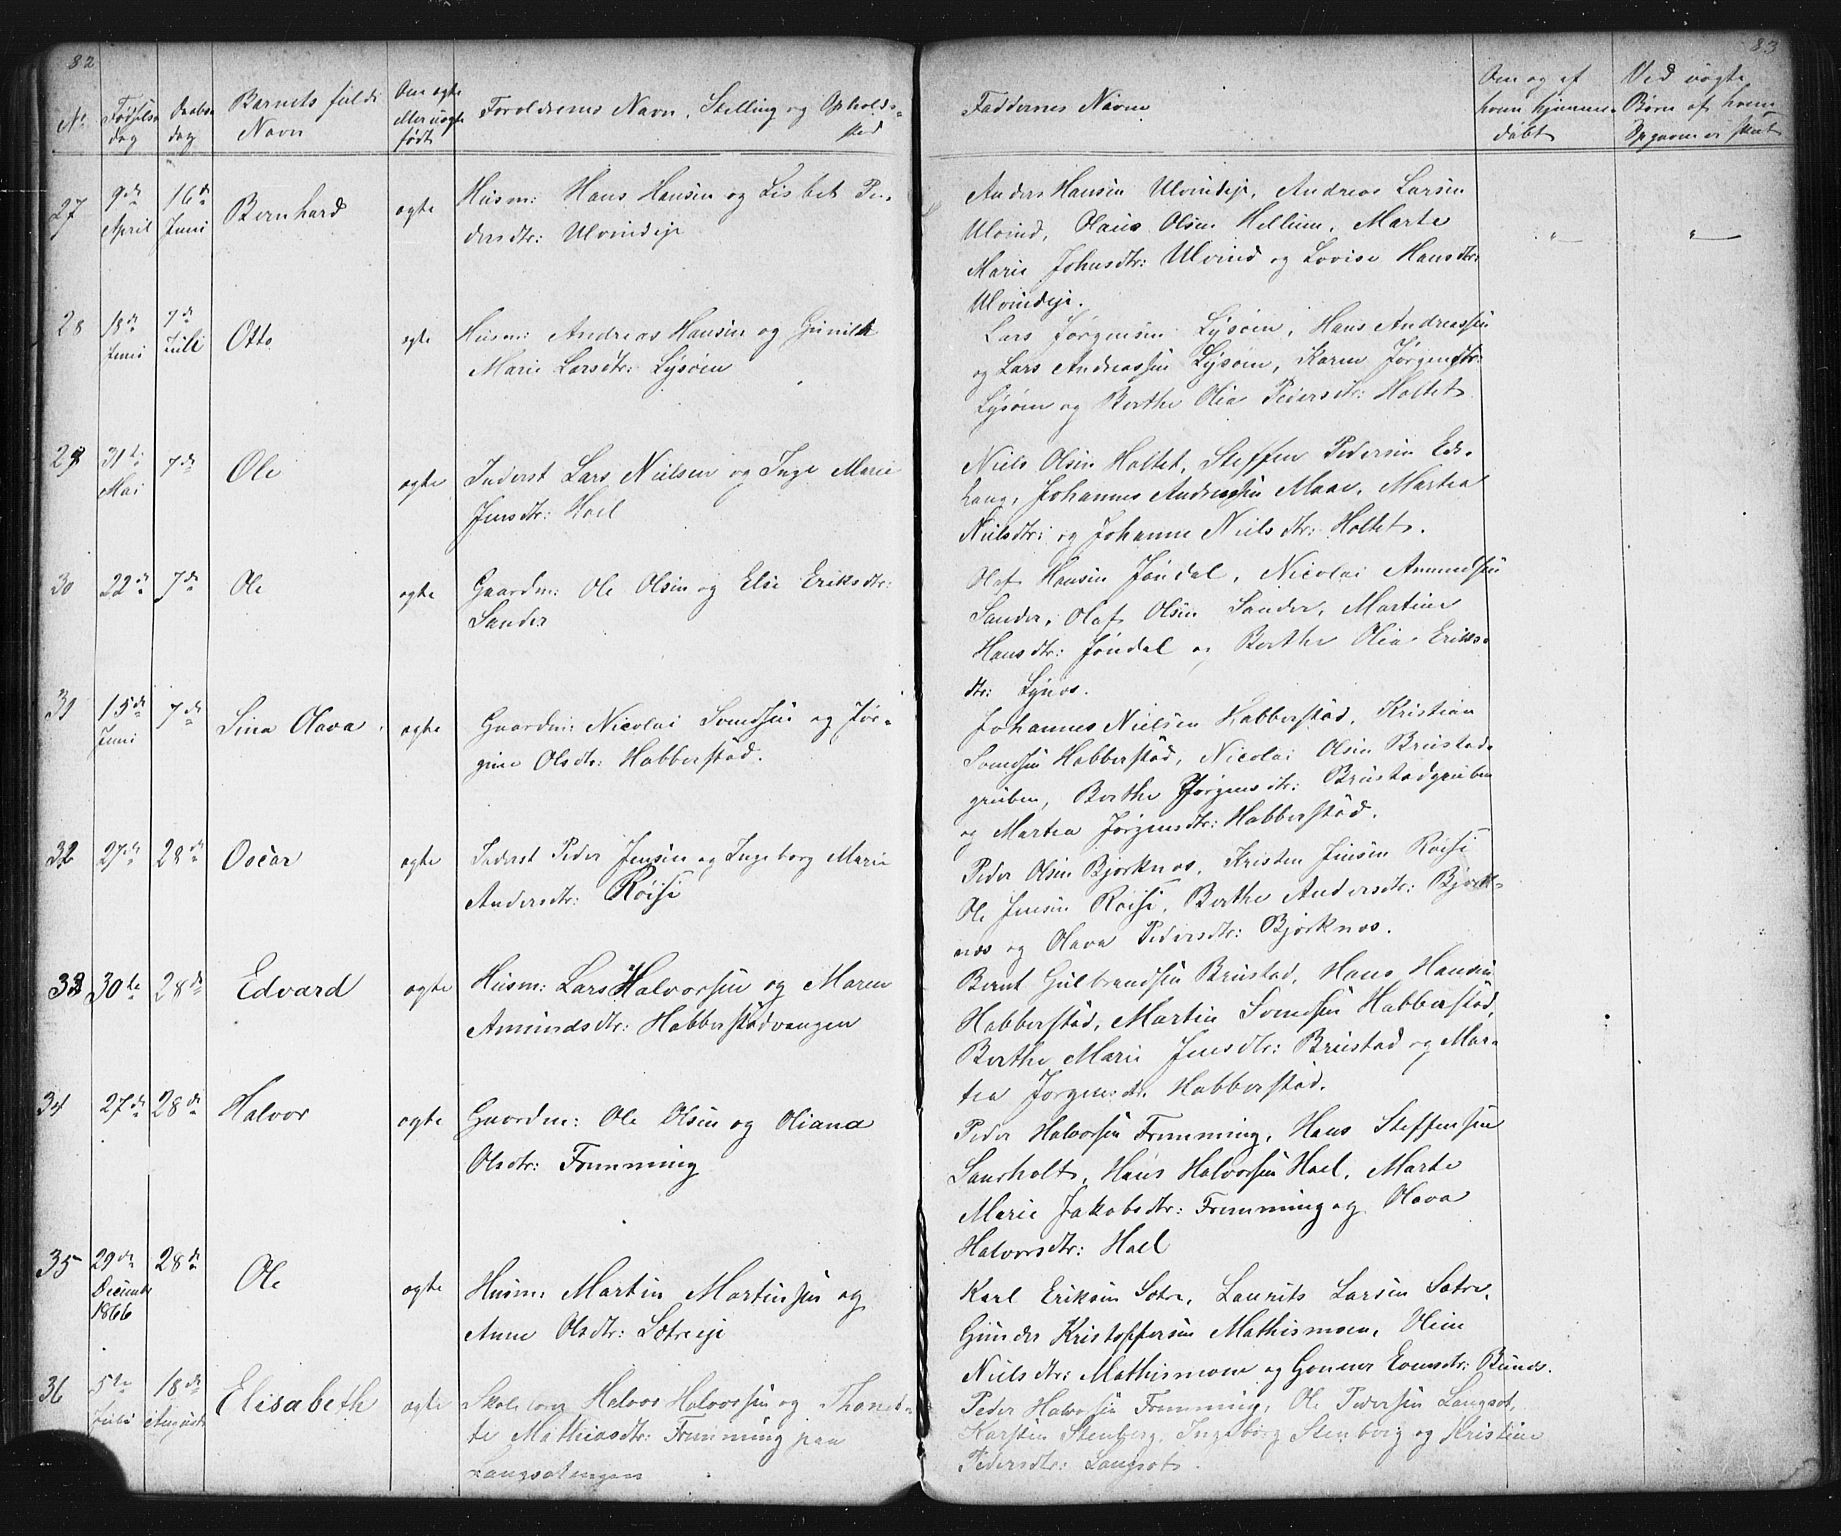 82
No.
Fødsels
dag
Daabs
dag
Barnets fulde
Navn
Om ægte
eller uægte
født
Forældrenes Navn, Stilling og Opholds-
sted
27
9de
April
16de
Juni
Bernhard
ægte
Husm: Hans Hansen og Lisbet Pe-
dersdtr: Ulvindeje
28
18de
Juni
7de
Juli
Otto
ægte
Husm: Andreas Hansen og Gunild
Marie Larsdtr: Lysøen
29
31te
Mai
7de
Ole
ægte
Inderst Lars Nielsen og Inge Marie
Jensdtr: Hoel
30
22de
7de
Ole
ægte
Gaardm: Ole Olsen og Else Eriksdtr:
Sander
31
15de
Juni
7de
Lina Olava
ægte
Gaardm: Nicolai Svendsen og Jør-
gine Olsdtr: Habberstad.
32
27de
28de
Oscar
ægte
Inderst Peder Jensen og Ingeborg Marie
Andersdtr: Röise
33
30te
28de
Edvard
ægte
Husm: Lars Halvorsen og Maren
Amundsdtr: Habberstadvangen
34
27de
28de
Halvor
ægte
Gaardm: Ole Olsen og Oliana
Olsdtr: Fremming
35
29de
December
1866
28de
Ole
ægte
Husm: Martin Martinsen og
Anne Olsdtr: Sætreeje
36
5te
Juli
18de
August
Elisabeth
ægte
Skolelærer Halvor Halvorsen og Thonet-
te Mathiasdtr: Fremming paa
Langsætengen
83
Faddernes Navne
Om og af
hvem hjemme-
døbt
Ved uægte
Børn af hvem
Opgaven er skeet
Anders Hansen Ulvindeje, Andreas Larsen
Ulvind, Olaus Olsen Hellum, Marte
Marie Johnsdtr: Ulvind og Lovise Hansdtr:
Ulvindeje.
" "
Lars Jørgensen Lysøen, Hans Andreassen
og Lars Andreassen Lysøen, Karen Jørgensdtr:
Lysøen og Berthe Olia Pedersdtr: Holtet
Niels Olsen Holtet, Steffen Pedersen Eds-
, Johannes Andreassen Maae, Martea
Nielsdtr: og Johanne Nielsdtr: Holtet.
Olaf Hansen Jøndal, Nicolai Ammundsen
Sander, Olaf Olsen Sander, Martine
Hansdtr: Jøndal og Berthe Olia Eriks-
dtr: Lynæs.
Johannes Nielsen Habberstad, Kristian
Svendsen Habberstad, Nicolai Olsen Brustad-
gruben, Berthe Jørgensdtr: Brustadgruben
og Martea Jørgensdtr: Habberstad.
Peder Olsen Bjørknæs, Kristen Jensen Röise
Ole Jensen Röise, Berthe Andersdtr: Bjørk-
næs og Olava Pedersdtr: Bjørknæs.
Bernt Gulbrandsen Brustad, Hans Hansen
Habberstad, Martin Svendsen Habberstad,
Berthe Marie Jensdtr: Brustad og Mar-
tea Jørgensdtr. Habberstad.
Peder Halvorsen Fremming, Hans Steffensen
Laurholt, Hans Halvorsen Hoel, Marte
Marie Jakobsdtr: Fremming og Olava
Halvorsdtr: Hoel
Karl Eriksen Sætre, Laurits Larsen Sætre,
Gunder Kristoffersen Mathismoen, Oline
Nielsdtr: Mathismoen og Gunner Evensdtr: Bunæs.
Peder Halvorsen Fremming, Ole Pedersen Langsæt,
Karsten Stenberg, Ingeborg Stenberg og Kristine
Pedersdtr: Langsæt.